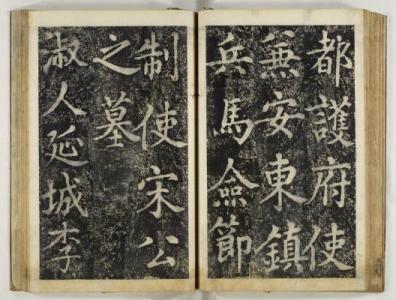 都護府使
兼安東鎮
兵馬僉節
制使宋公
之墓
淑人延城李